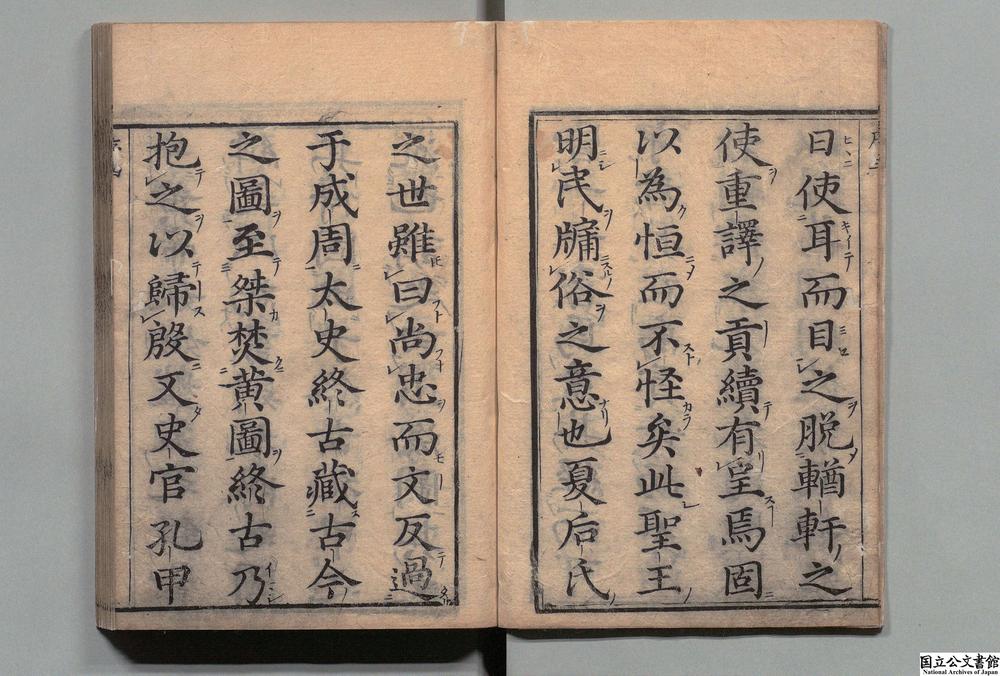 日使耳而目之脱輶軒之
使重譯之貢續有呈焉固
以為恒而不怪矣此聖王
明民牗俗之意也夏后氏
之世雖曰尚忠而文反過
于成周太史終古藏古今
之圖至桀焚黄圖終古乃
抱之以歸殷又史官孔甲
国立公文書館
National Archives of Japan